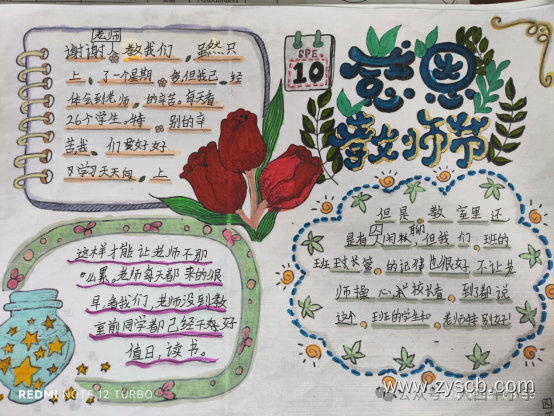 老师
谢谢 教我们，虽然只
上 了一个星期 但我已 经
体会到老师 的辛苦。每天看
26个学生 特 别的辛
苦我 们要好好
学习天天向 上
SPE
10
感恩
教师节
这样才能让老师不那
么累。老师每天都 来的很
早看我们，老师没到教
室前同学都已经 好
值日，读书。
但是教室里还
是有 人闲聊，但我们班的
班 长管 的记律也很好 不让老
师操心 校长看 到了都说
这个 班的学生和 老师特别好！
REDMI NOTE 12 TURBO
公众号
www.zyscb.com